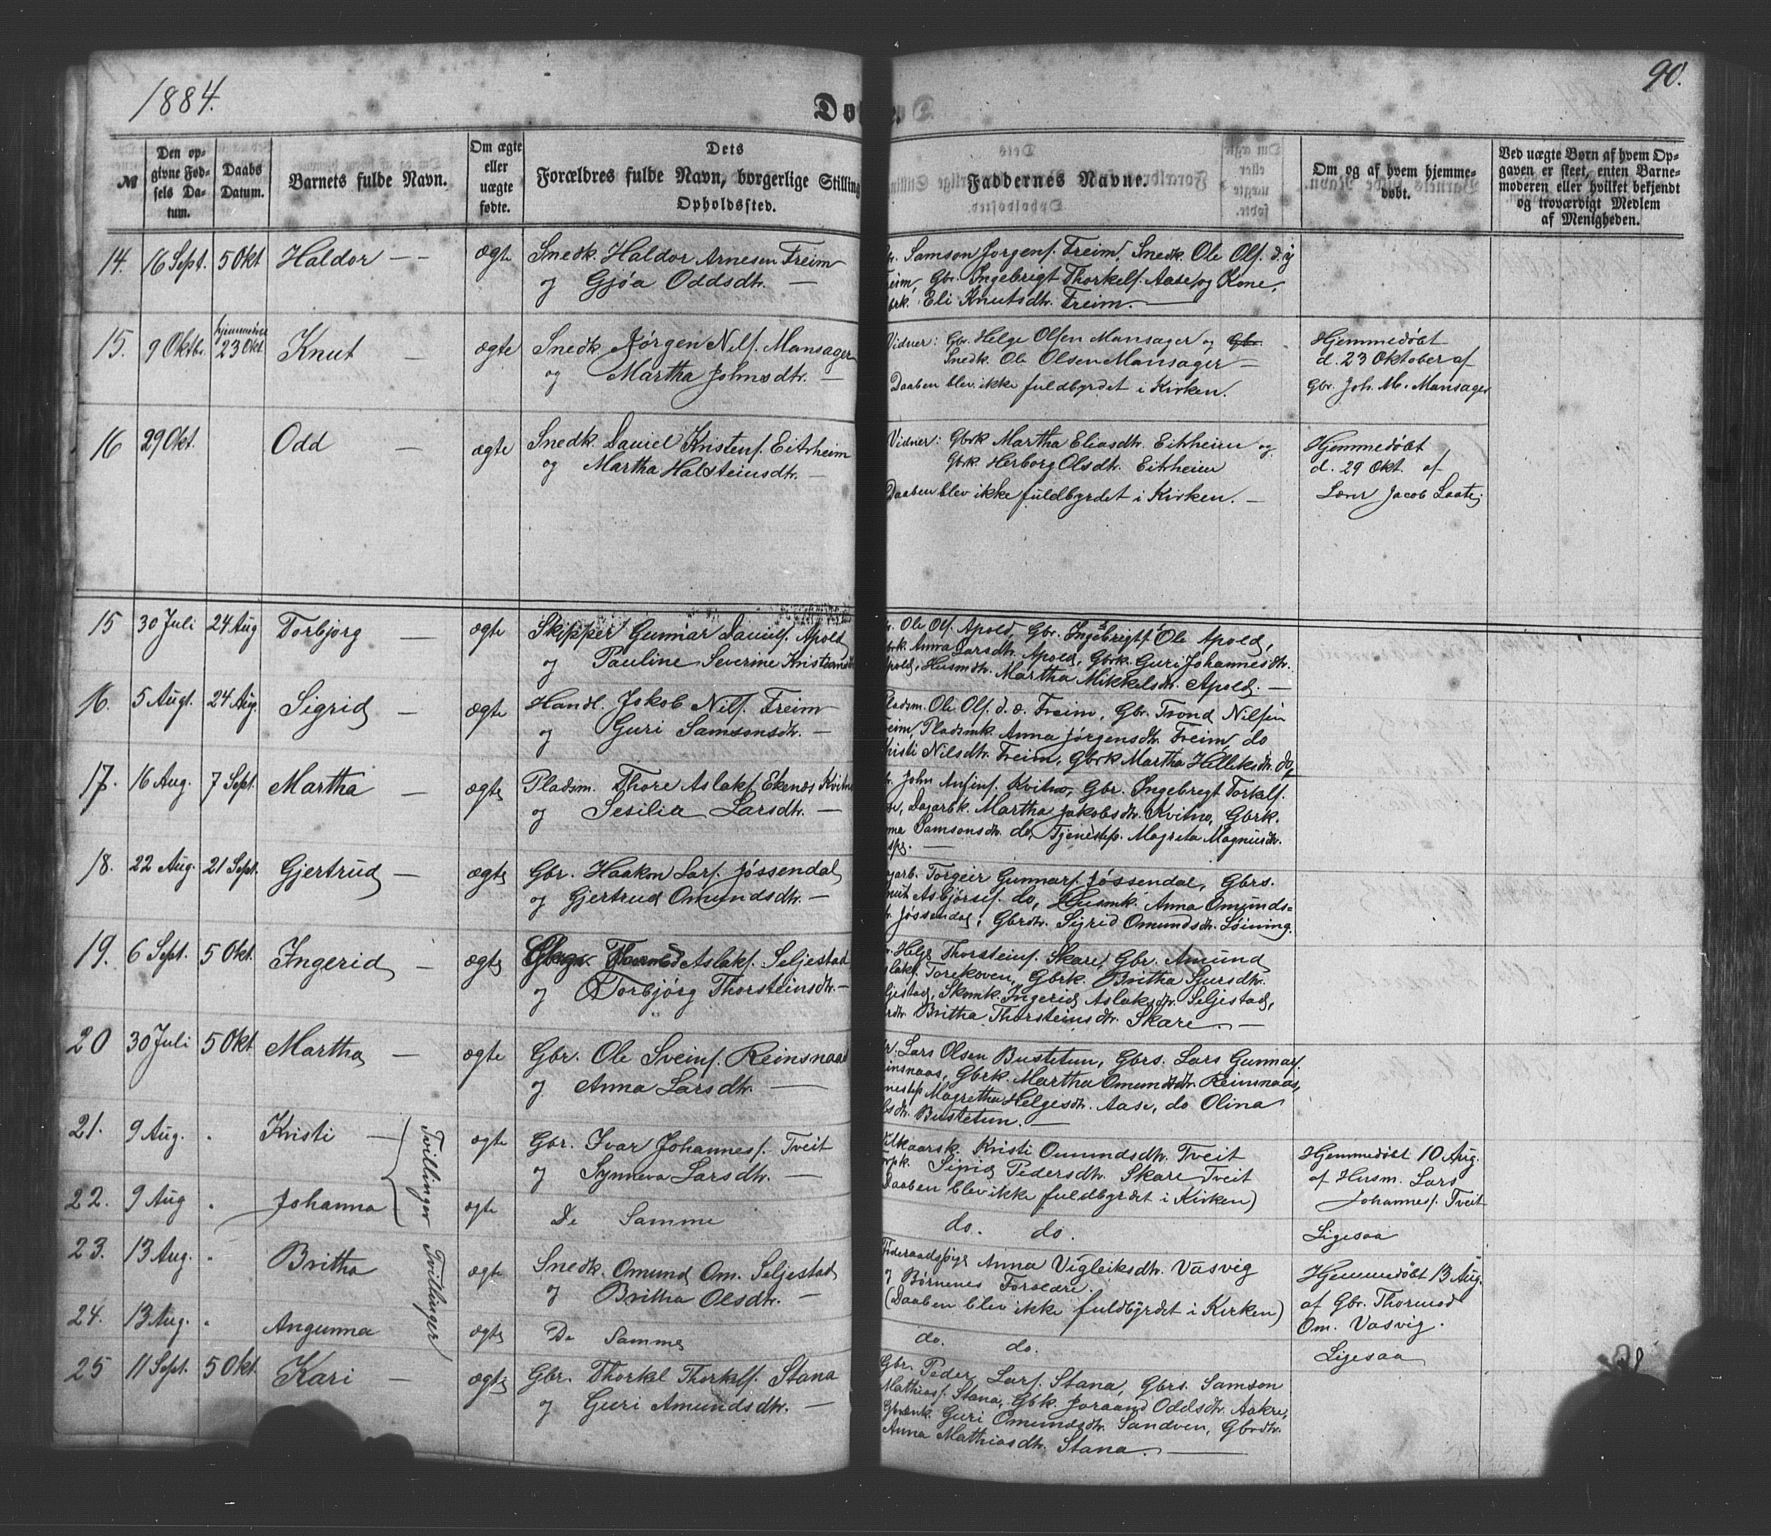 1884.
90.
Døbte.
№
Den opgivne Fødsels Datum.
Daabs Datum.
Barnets fulde Navn.
Om ægte eller uægte fødte.
Dets Forældres fulde Navn, borgerlige Stilling Opholdssted.
Faddernes Navne.
Om og af hvem hjemmedøbt.
Ved uægte Børn af hvem Opgaven er skeet, enten Barnemoderen eller hvilket bekjendt og troværdigt Medlem af Menigheden.
14. 16 Sept. 5 Okt Haldor — ægte Snedk. Haldor Arnesen Freim
og Gjøa Oddsdtr. —
Samson Jørgens. Freim, Snedk. Ole Ols. d.y
Freim, Gbr. Ingebrigt Thorkels. Aase, og Kone,
Eli Knutsdtr. Freim. —
15. 9 Oktbr. hjemmedøbt 23 Okt. Knut — ægte Snedk. Jørgen Nils. Mansager
og Martha Johnsdtr. —
Vidner: Gbr. Helge Olsen Mansager og Gbr.
Snedk. Ole Olsen Mansager —
Daaben blev ikke fuldbyrdet i Kirken.
Hjemmedøbt
d. 23 Oktober af
Gbr. Joh. M. Mansager
16 29 Okt. Odd — ægte Snedk. Daniel Kristens. Eitrheim
og Martha Halsteinsdtr. —
Vidner: Gbrk Martha Eliasdtr. Eitrheim og
Gbrk. Herborg Olsdtr. Eitrheim
Daaben blev ikke fuldbyrdet i Kirken. —
Hjemmedøbt
d. 29 Okt. af
Lærer Jacob Laate
15 30 Juli 24 Aug Torbjørg — ægte Skipper Gunnar Daniels. Apold
og Pauline Severine Kristiansdtr
Ole Ols. Apold, Gbr. Ingebrigts. Ole Apold,
Anna Larsdtr. Apold, Gbrk. Guri Johannesdtr.
Apold, Husmdtr. Martha Mikkelsdtr. Apold. —
16. 5 Augt. 24 Aug. Sigrid — ægte Handl. Jakob Nils. Freim
og Guri Samsonsdtr. —
Pladsm. Ole Ols. d. æ. Freim, Gbr. Trond Nilsen
Freim, Pladsmk. Anna Jørgensdtr. Freim, do
Kristi Nilsdtr. Freim, Gbrk Martha Helliksdtr. do,
17. 16 Aug. 7 Sept. Martha — ægte Pladsm. Thore Aslaks. Ekenæs Kvitno
og Sesilia Larsdtr. —
John Anfins. Kvitno, Gbr. Ingebrigt Torkels.
Aase, Dagarbk. Martha Jakobsdtr. Kvitno, Gbrk.
Samsonsdtr. do, Tjenestep. Magreta Magnusdtr.
18. 22 Aug. 21 Sept. Gjertrud — ægte Gbr. Haakon Lars. Jøssendal
og Gjertrud Omundsdtr. —
Torgeir Gunnars. Jøssendal, Gbrs.
Knut Asbjørns. do, Husmk. Anna Omunds-
dtr. Jøssendal, Gbrdtr. Sigrid Omundsdtr. Løining.
19. 6 Sept. 5 Okt. Ingerid — ægte Aslaks. Seljestad
og Torbjørg Thorsteinsdtr. —
Helge Thorsteins. Skare, Gbr. Amund
Aslaks. Torekoven, Gbrk. Britha Sjursdtr.
Seljestad, Skomk. Ingerid Aslaksdtr. Seljestad,
Britha Thorsteinsdtr. Skare. —
20 30 Juli 5 Okt. Martha — ægte Gbr. Ole Sveins. Reinsnaas
og Anna Larsdtr. —
Lars Olsen Bustetun, Gbrs. Lars Gunnars.
Reinsnaas, Gbrk. Martha Omundsdtr. Reinsnaas,
Magretha Helgesdtr. Aase, do Olina
Bustetun. —
21. 9 Aug. Kristi — ægte Gbr. Ivar Johannes. Tveit
og Synneva Larsdtr. —
Tvillinger
Kristi Omundsdtr. Tveit
Sigrid Pedersdtr. Skare Tveit
(Daaben blev ikke fuldbyrdet i Kirken)
Hjemmedøbt 10 Aug.
af Husm. Lars
Johannes. Tveit
22. 9 Aug Johanna ægte De Samme
do. do.
Ligesaa
23. 13 Aug. Britha ægte Snedk. Omund Om. Seljestad
og Britha Olsdtr. —
Tvillinger
Føderaadspige Anna Vigleiksdtr. Vasvig
og Børnenes Forældre.
(Daaben blev ikke fuldbyrdet i Kirken)
Hjemmedøbt 13 Aug.
af Gbr. Thormod
Om. Vasvig.
24. 13 Aug. Angunna ægte De Samme
do. do.
Ligesaa
25 11 Sept. 5 Okt. Kari — ægte Gbr. Thorkel Thorkels. Stana
og Guri Amundsdtr. —
Gbr. Peder Lars. Stana, Gbrs. Samson
Mathias. Stana, Gbk. Joraand Odelsdtr. Aakre,
Guri Omundsdtr. Sandven, Gbrdtr.
Anna Mathiasdtr. Stana. —